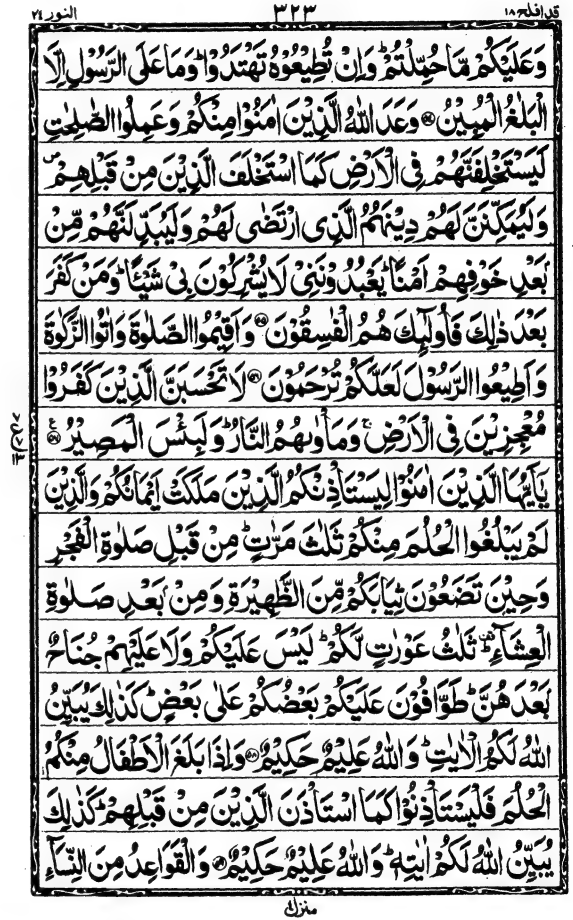 قد افلح ١٨ ٣٢٣ النور ٢٤
وَعَلَيْكُمْ مَّا حُمِّلْتُمْ ؕ وَاِنْ تُطِيْعُوْهُ تَهْتَدُوْا ؕ وَمَا عَلَى الرَّسُوْلِ اِلَّا
الْبَلٰغُ الْمُبِيْنُ ﴿٥٤﴾ وَعَدَ اللّٰهُ الَّذِيْنَ اٰمَنُوْا مِنْكُمْ وَعَمِلُوا الصّٰلِحٰتِ
لَيَسْتَخْلِفَنَّهُمْ فِى الْاَرْضِ كَمَا اسْتَخْلَفَ الَّذِيْنَ مِنْ قَبْلِهِمْ ص
وَلَيُمَكِّنَنَّ لَهُمْ دِيْنَهُمُ الَّذِى ارْتَضٰى لَهُمْ وَلَيُبَدِّلَنَّهُمْ مِّنْۢ
بَعْدِ خَوْفِهِمْ اَمْنًا ؕ يَعْبُدُوْنَنِىْ لَا يُشْرِكُوْنَ بِىْ شَيْـًٔا ؕ وَمَنْ كَفَرَ
بَعْدَ ذٰلِكَ فَاُولٰٓئِكَ هُمُ الْفٰسِقُوْنَ ﴿٥٥﴾ وَاَقِيْمُوا الصَّلٰوةَ وَاٰتُوا الزَّكٰوةَ
وَاَطِيْعُوا الرَّسُوْلَ لَعَلَّكُمْ تُرْحَمُوْنَ ﴿٥٦﴾ لَا تَحْسَبَنَّ الَّذِيْنَ كَفَرُوْا
مُعْجِزِيْنَ فِى الْاَرْضِ ۚ وَمَاْوٰىهُمُ النَّارُ ؕ وَلَبِئْسَ الْمَصِيْرُ ﴿٥٧﴾ ع
يٰٓاَيُّهَا الَّذِيْنَ اٰمَنُوْا لِيَسْتَاْذِنْكُمُ الَّذِيْنَ مَلَكَتْ اَيْمَانُكُمْ وَالَّذِيْنَ
لَمْ يَبْلُغُوا الْحُلُمَ مِنْكُمْ ثَلٰثَ مَرّٰتٍ ؕ مِنْ قَبْلِ صَلٰوةِ الْفَجْرِ
وَحِيْنَ تَضَعُوْنَ ثِيَابَكُمْ مِّنَ الظَّهِيْرَةِ وَمِنْۢ بَعْدِ صَلٰوةِ
الْعِشَآءِ ؕ ثَلٰثُ عَوْرٰتٍ لَّكُمْ ؕ لَيْسَ عَلَيْكُمْ وَلَا عَلَيْهِمْ جُنَاحٌۢ
بَعْدَهُنَّ ؕ طَوّٰفُوْنَ عَلَيْكُمْ بَعْضُكُمْ عَلٰى بَعْضٍ ؕ كَذٰلِكَ يُبَيِّنُ
اللّٰهُ لَكُمُ الْاٰيٰتِ ؕ وَاللّٰهُ عَلِيْمٌ حَكِيْمٌ ﴿٥٨﴾ وَاِذَا بَلَغَ الْاَطْفَالُ مِنْكُمُ
الْحُلُمَ فَلْيَسْتَاْذِنُوْا كَمَا اسْتَاْذَنَ الَّذِيْنَ مِنْ قَبْلِهِمْ ؕ كَذٰلِكَ
يُبَيِّنُ اللّٰهُ لَكُمْ اٰيٰتِهٖ ؕ وَاللّٰهُ عَلِيْمٌ حَكِيْمٌ ﴿٥٩﴾ وَالْقَوَاعِدُ مِنَ النِّسَآءِ